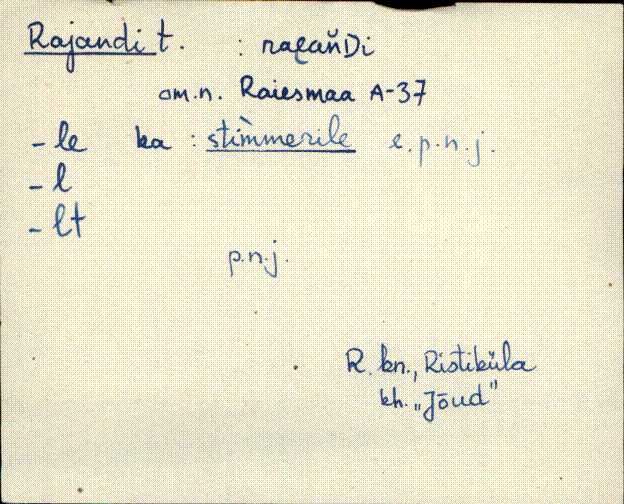 Rajandi t. : raεaňDi
om.n. Raiesmaa A-37
-le ka : stìmmerile e.p.n.j.
-l
-lt
p.n.j.
R. kn., Ristiküla
kh. „Jõud"